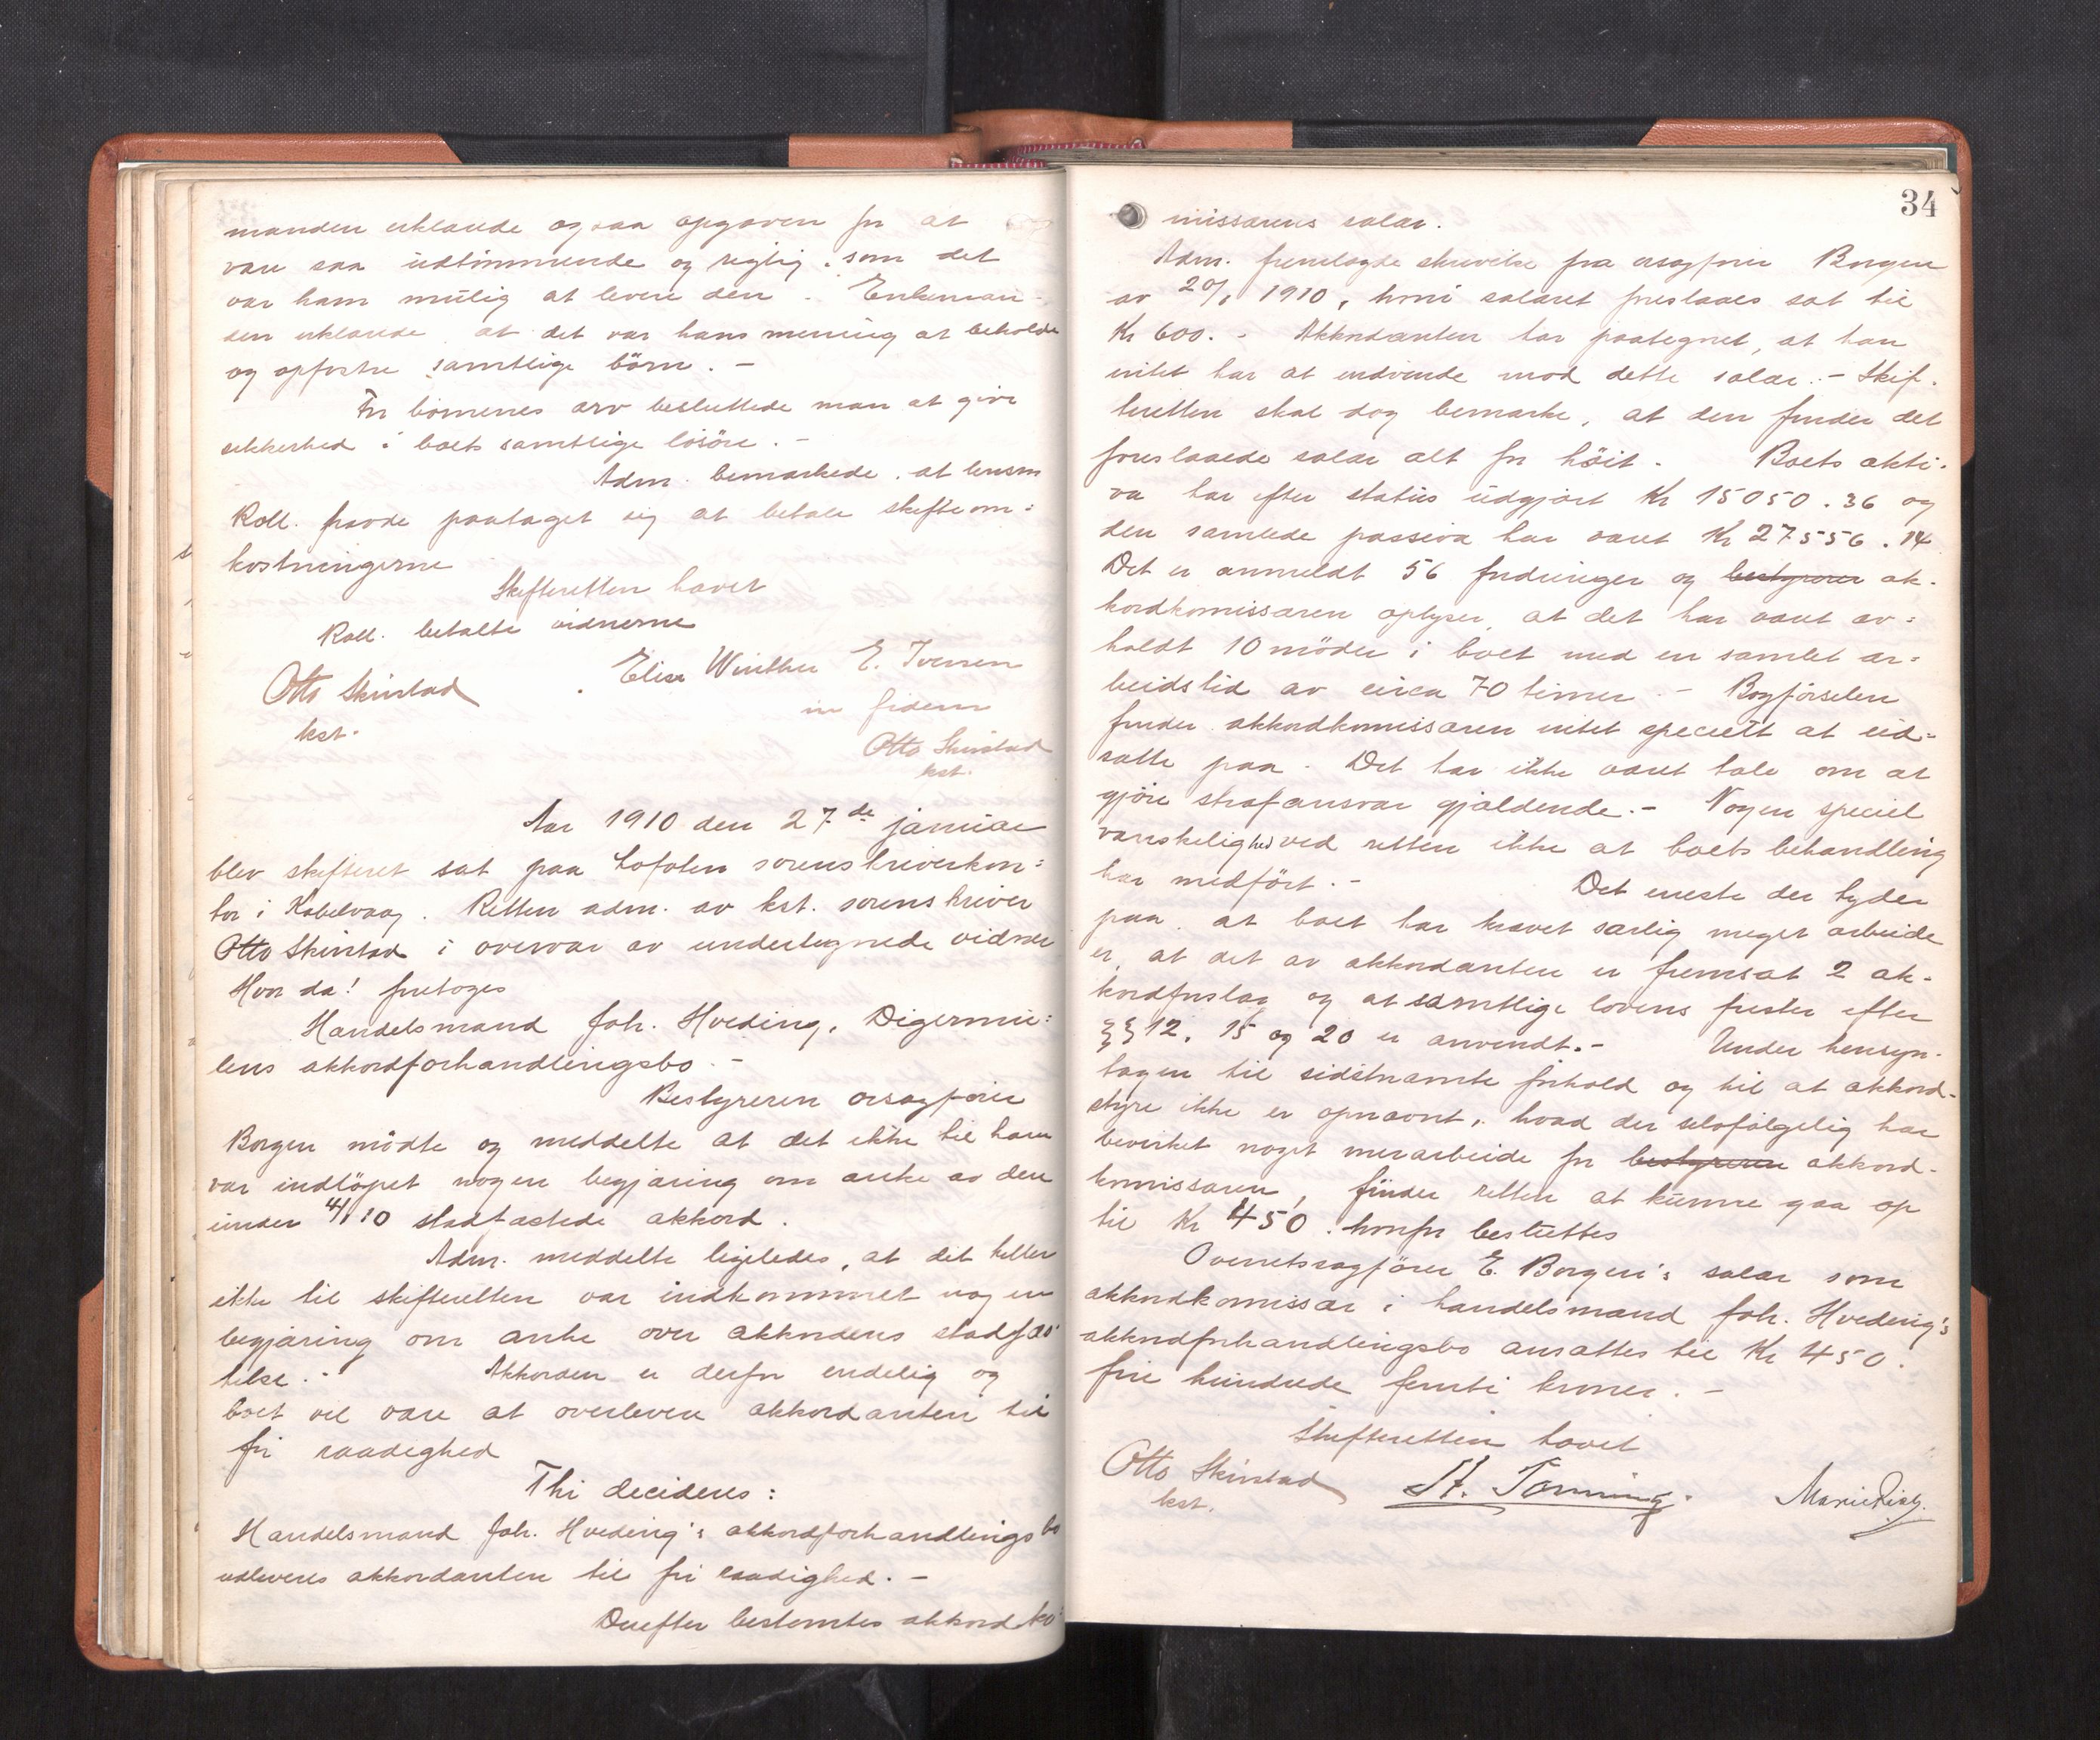 manden erklærede ogsaa opgaven for at
være saa udtømmende og rigtig, som det
var ham mulig at levere den. Enkeman-
den erklærede at det var hans mening at beholde
og opfostre samtlige börn. -
For börnenes arv besluttede man at give
sikkerhed i boets samtlige lösöre. -
Adm. bemærkede, at lensm
Roll. havde paataget sig at betale skifteom=
kostningerne
Skifteretten hævet
Roll. betalte vidnerne
Otto Skirstad Elise Winther E. Iversen
kst. in fidem
Otto Skirstad
kst.
Aar 1910 den 27.de januar
blev skifteret sat paa Lofoten sorenskriverkon=
tor i Kabelvaag. Retten adm. av kst. sorenskriver
Otto Skirstad i overvær av undertegnede vidner
Hvor da! foretoges
Handelsmand Joh. Hveding, Digermu=
lens akkordforhandlingsbo. -
Bestyreren orsagfører
Borgen mödte og meddelte at det ikke til ham
var indlöpet nogen begjæring om anke av den
under 4/1 10 stadfæstede akkord.
Adm. meddelte ligeledes, at det heller
ikke til skifteretten var indkommet nogen
begjæring om anke over akkordens stadfæs-
telse. - Akkorden er derfor endelig og
boet vil være at overlevere akkordanten til
fri raadighed
Thi decideres:
Handelsmand Joh. Hveding's akkordforhandlingsbo
utleveres akkordanten til fri raadighed. -
Derefter bestemtes akkordko=
34
missærens salær.
Adm. fremlagde skrivelse fra orsagfører Borgen
av 20/1 1910, hvori salæret foreslaaes sat til
Kr 600. - Akkordanten har paategnet, at han
intet har at indvende mod dette salær. - Skif-
teretten skal dog bemærke, at den finder det
foreslaaede salær alt for höit. Boets akti-
va har efter status udgjort Kr 15050.36 og
den samlede passiva har været Kr 27556.14
Det er anmeldt 56 fordringer og bestyreren ak-
kordkomissæren oplyser, at det har været av=
holdt 10 möder i boet med en samlet ar=
beidstid av circa 70 timer. - Bogförselen
finder akkordkomissæren intet specielt at ud=
sætte paa. Det har ikke været tale om at
gjöre strafansvar gjældende. - Nogen speciel
vanskelighed ved retten ikke at boets behandling
har medfört. - Det eneste der tyder
paa, at boet har krævet særlig meget arbeide
er, at det av akkordanten er fremsat 2 ak-
kordforslag og at samtlige lovens frister efter
§§ 12, 15 og 20 er anvendt. - Under hensyn-
tagen til sidstnævnte forhold og til at akkord-
styre ikke er opnævnt, hvad der selvfölgelig har
bevirket noget merarbeide for bestyreren akkord-
komissæren, finder retten at kunne gaa op
til Kr 450. hvorfor besluttes
Overretssagförer E. Borgen's salær som
akkordkomissær i handelsmand Joh. Hveding's
akkordforhandlingsbo ansættes til Kr 450.
fire hundrede femti kroner. -
Skifteretten hævet
Otto Skirstad H. Tönning. Marie Riis
kst.